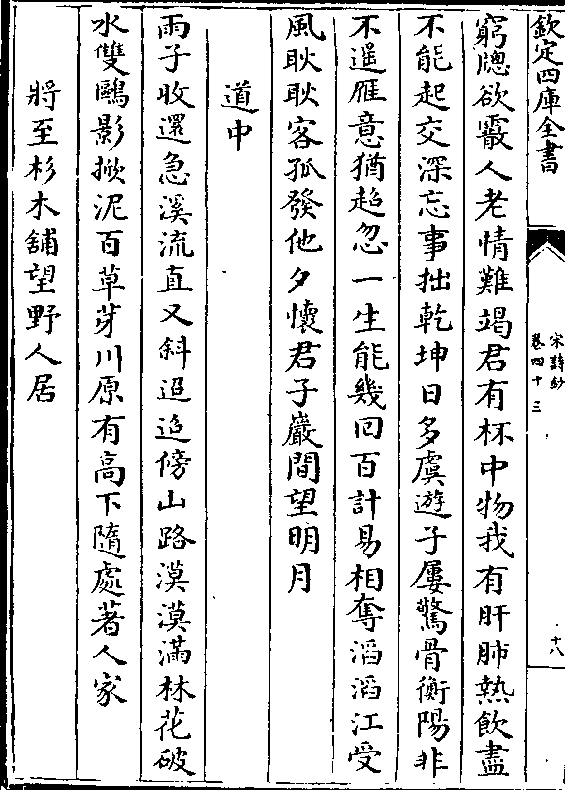 欽定四庫全書
宋詩鈔
卷四十三
十八
窮牕欲霰人老情難竭君有杯中物我有肝肺熱飲盡
不能起交深忘事拙乾坤日多虞遊子屢驚骨衡陽非
不遥雁意猶超忽一生能幾囘百計易相奪滔滔江受
風耿耿客孤發他夕懷君子巖間望明月
道中
雨子收還急溪流直又斜迢迢傍山路漠漠滿林花破
水雙鷗影掀泥百草芽川原有高下隨處著人家
將至杉木舖望野人居